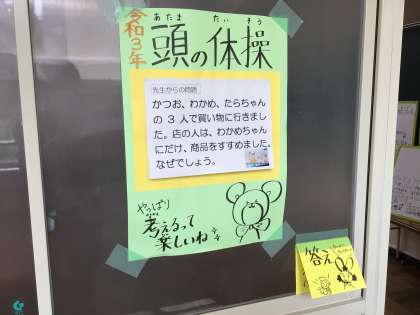 令和3年
あたま たいそう
頭の体操
先生からの問題
かつお、わかめ、たらちゃん
の3人で買い物に行きまし
た。店の人は、わかめちゃん
にだけ、商品をすすめました。
なぜでしょう。
やっぱり
考えるって
楽しいね
答え